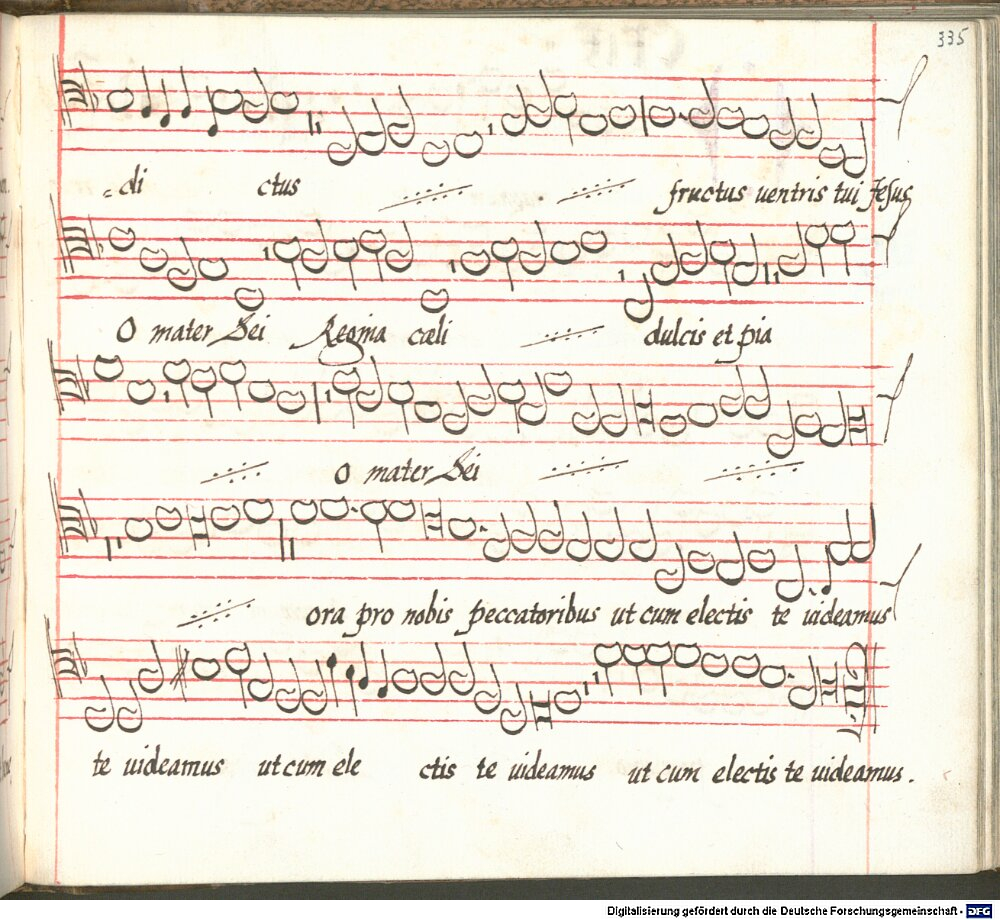 335
=di ctus fructus uentris tui Jesus
O mater Dei Regina cœli dulcis et pia
O mater Dei
ora pro nobis peccatoribus ut cum electis te uideamus
te uideamus ut cum ele ctis te uideamus ut cum electis te uideamus.
Digitalisierung gefördert durch die Deutsche Forschungsgemeinschaft - DFG